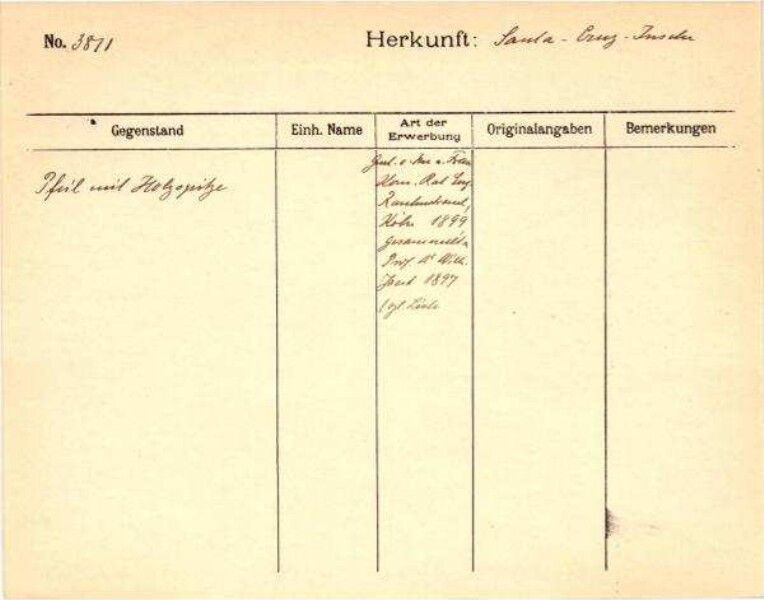 No. 3871
Herkunft: Santa-Cruz-Inseln
Gegenstand
Einh. Name
Art der Erwerbung
Originalangaben
Bemerkungen
Pfeil mit Holzspitze
u. Frau
Kom. Rat Eug.
Rautenstrauch,
Köln 1899
gesammelt v.
Prof. Dr Wilh.
Joest 1897
(vgl. Liste